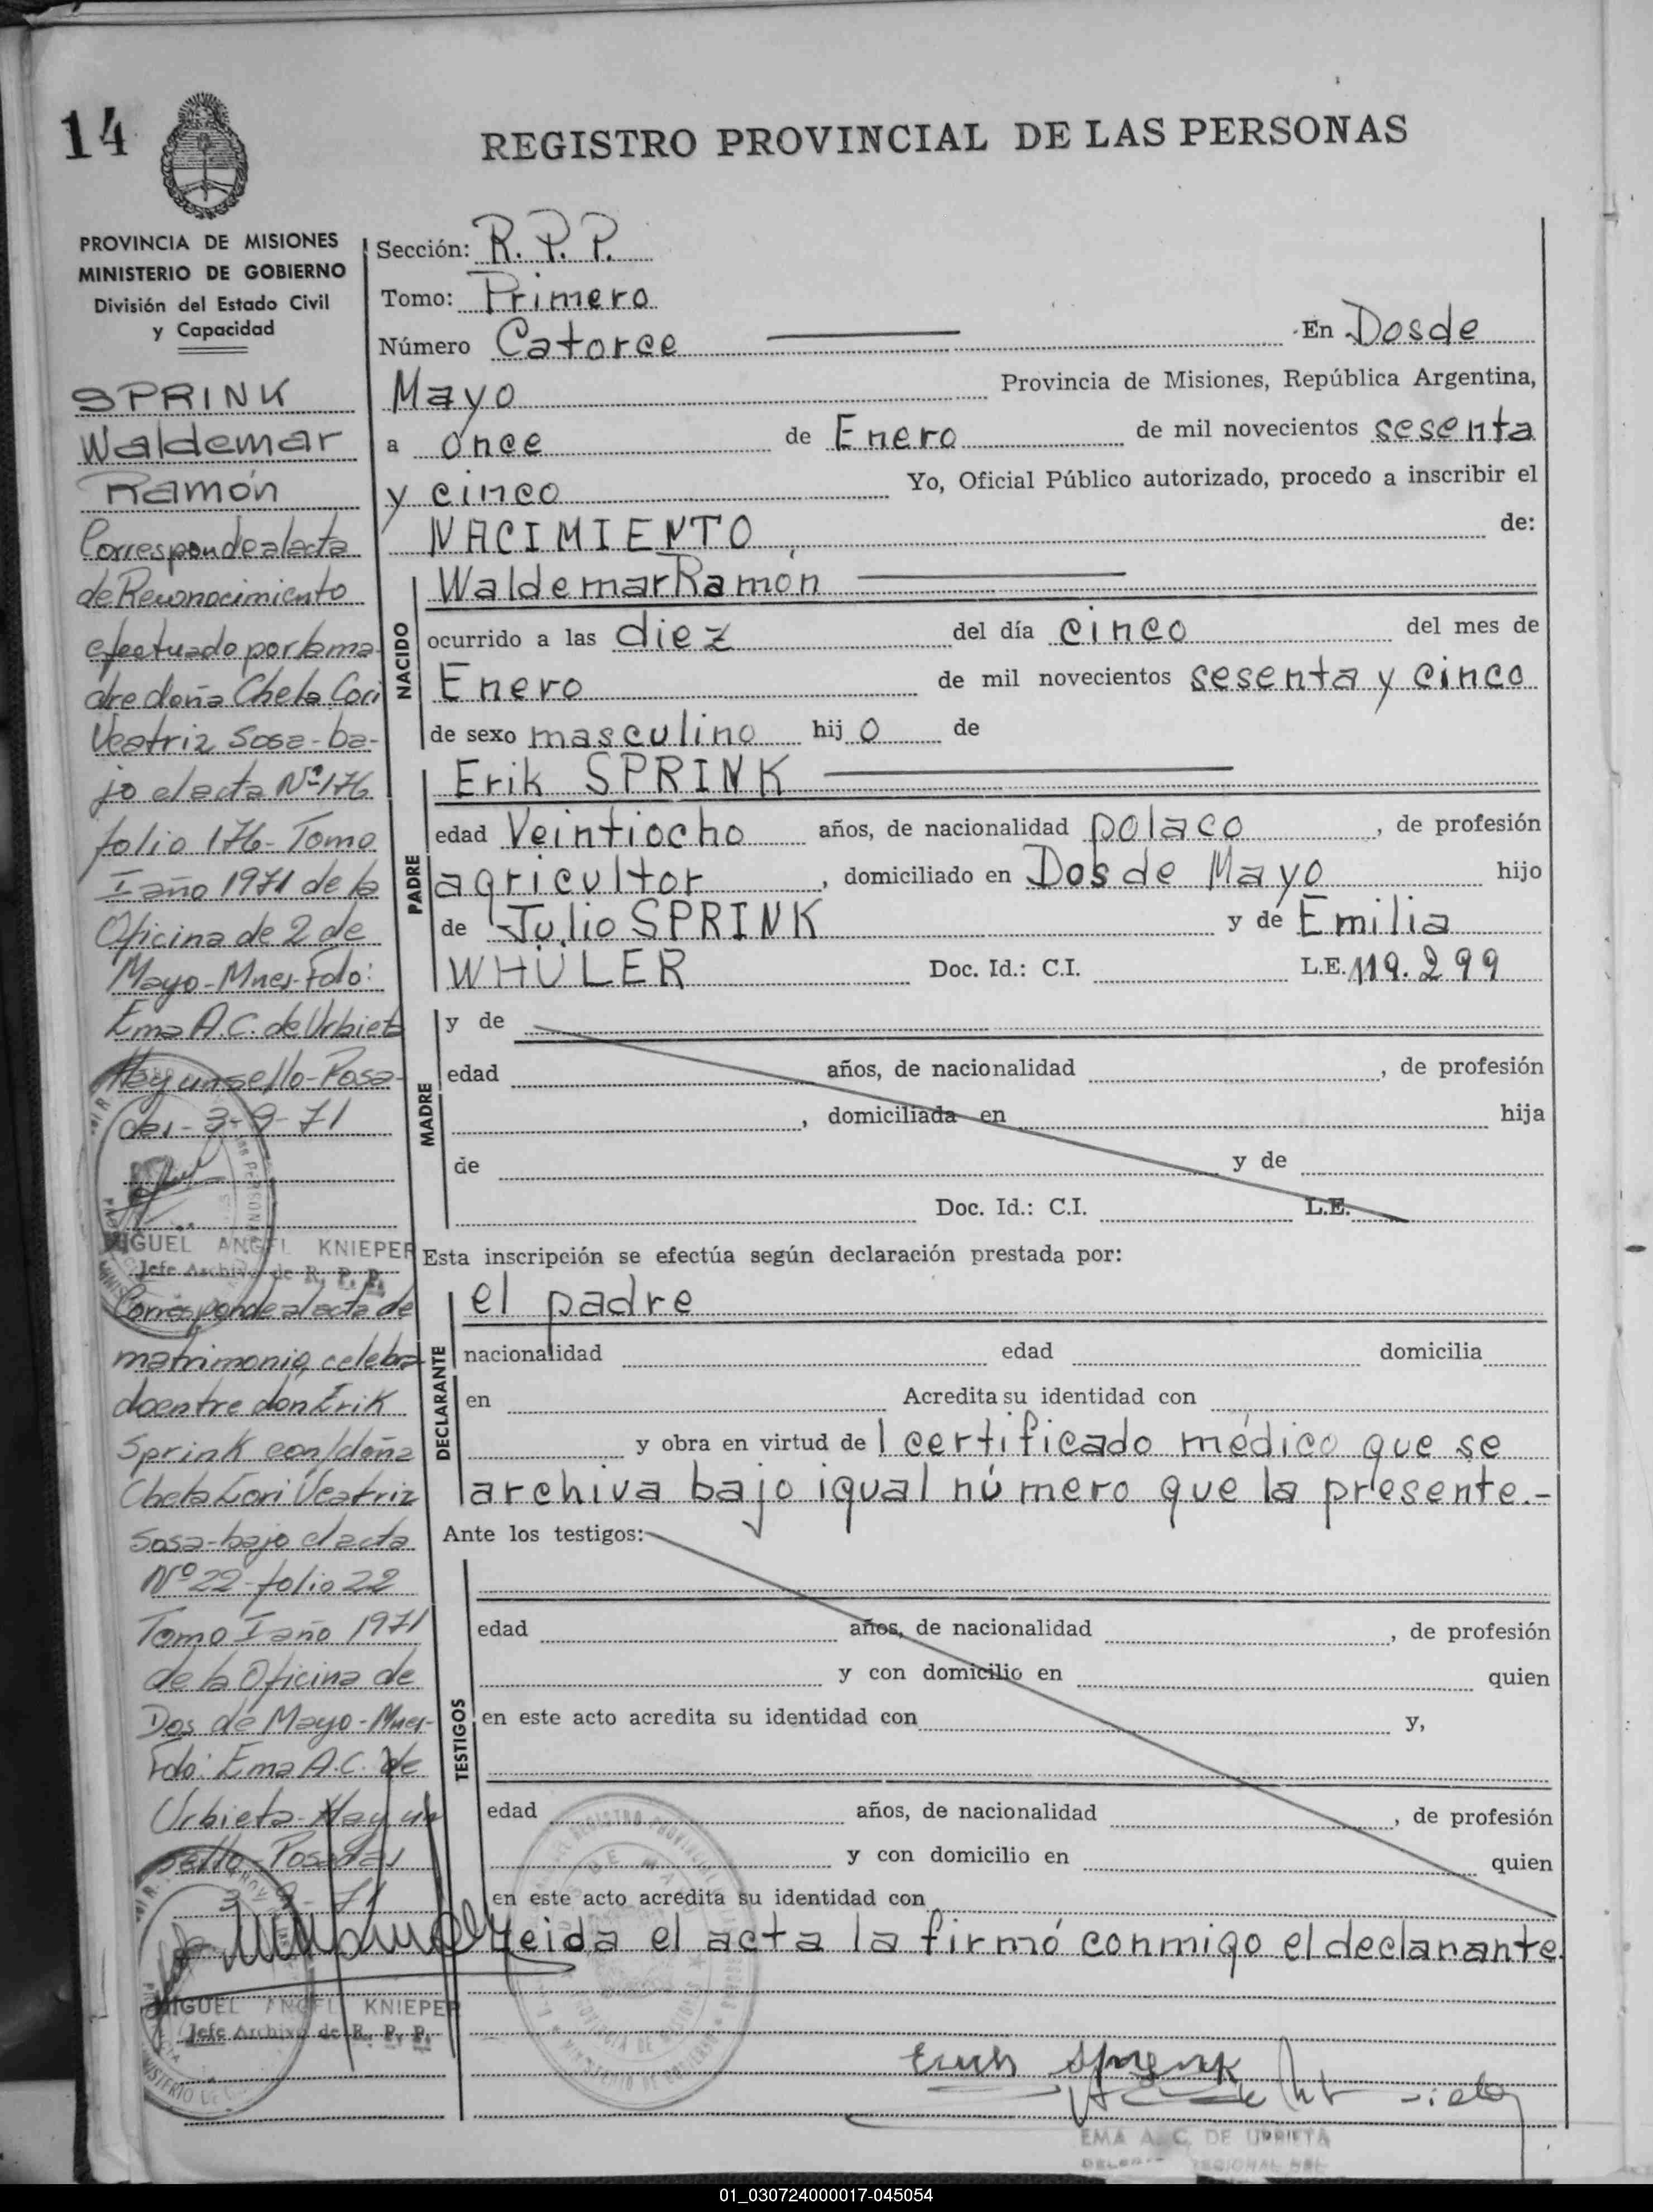 14
REGISTRO PROVINCIAL DE LAS PERSONAS
PROVINCIA DE MISIONES
MINISTERIO DE GOBIERNO
División del Estado Civil
y Capacidad
SPRINK
Waldemar
Ramón
Corresponde al acta
de Reconocimiento
efectuado por la ma-
dre doña Chela Lori
Veatriz Sosa - ba-
jo el acta Nº 176
folio 176 - Tomo
I año 1971 de la
Oficina de 2 de
Mayo - Mnes - Fdo:
Ema A.C. de Urbieta
Hay un sello - Posa-
das - 3-9-71
MIGUEL ANGEL KNIEPER
Jefe Archivo de R. P. P.
Corresponde al acta de
matrimonio, celebra
do entre don Erik
Sprink con/doña
Chela Lori Veatriz
Sosa - bajo el acta
Nº 22 - folio 22
Tomo I año 1971
de la Oficina de
Dos de Mayo - Mnes -
Fdo: Ema A.C. de
Urbieta - Hay un
sello - Posadas
3-9-71
MIGUEL ANGEL KNIEPER
Jefe Archivo de R. P. P.
Sección: R. P. P.
Tomo: Primero
Número Catorce En Dos de
Mayo Provincia de Misiones, República Argentina,
a once de Enero de mil novecientos sesenta
y cinco Yo, Oficial Público autorizado, procedo a inscribir el
NACIMIENTO, de:
NACIDO
Waldemar Ramón
ocurrido a las diez del día cinco del mes de
Enero de mil novecientos sesenta y cinco
de sexo masculino hijo de
PADRE
Erik SPRINK
edad Veintiocho años, de nacionalidad polaco, de profesión
agricultor, domiciliado en Dos de Mayo hijo
de Julio SPRINK y de Emilia
WHÜLER Doc. Id.: C.I. L.E. 119.299
MADRE
y de
edad años, de nacionalidad , de profesión
, domiciliada en hija
de y de
Doc. Id.: C.I. L.E.
Esta inscripción se efectúa según declaración prestada por:
DECLARANTE
el padre
nacionalidad edad domicilia
en Acredita su identidad con
y obra en virtud de l certificado médico que se
archiva bajo igual número que la presente.-
Ante los testigos:
TESTIGOS
edad años, de nacionalidad , de profesión
y con domicilio en quien
en este acto acredita su identidad con y,
edad años, de nacionalidad , de profesión
y con domicilio en quien
en este acto acredita su identidad con
Leida el acta la firmó conmigo el declarante
Erich Sprenk
EMA A. C. DE URBIETA
01_030724000017-045054